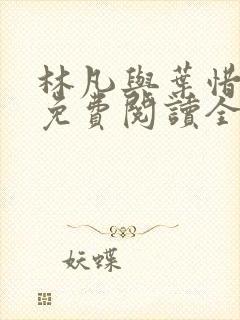 林凡與葉惜
免費閱讀全
妖蝶